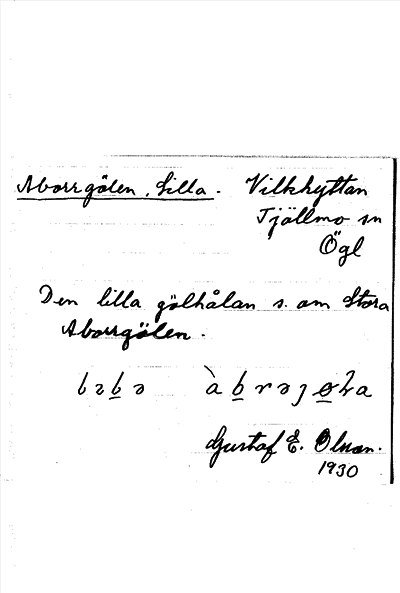 Aborrgölen, Lilla. Vilkhyttan
Tjällmo sn
Ögl
Den lilla gölhålan s. om Stora
Aborrgölen.
Gustaf E. Olsson.
1930